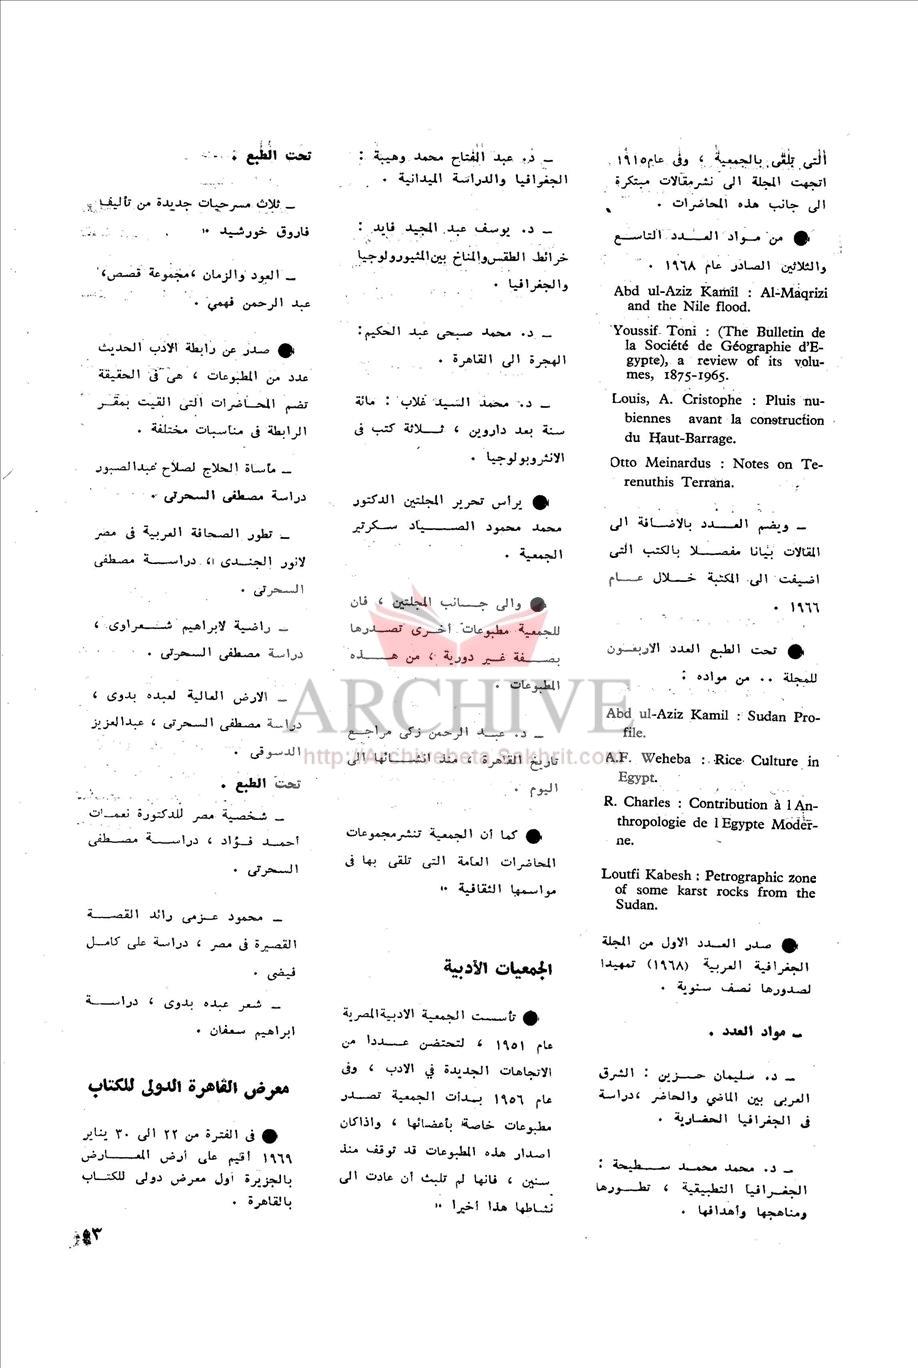 التى تلقى بالجمعية ، وفى عام ١٩١٥
اتجهت المجلة الى نشر مقالات مبتكرة
الى جانب هذه المحاضرات .
● من مواد العدد التاسع
والثلاثين الصادر عام ١٩٦٨ .
Abd ul-Aziz Kamil : Al-Maqrizi
and the Nile flood.
Youssif Toni : (The Bulletin de
la Société de Géographie d'E-
gypte), a review of its volu-
mes, 1875-1965.
Louis, A. Cristophe : Pluis nu-
biennes avant la construction
du Haut-Barrage.
Otto Meinardus : Notes on Te-
renuthis Terrana.
ـ ويضم العدد بالاضافة الى
المقالات بيانا مفصلا بالكتب التى
اضيفت الى المكتبة خلال عام
١٩٦٦ .
● تحت الطبع العدد الاربعون
للمجلة .. من مواده :
Abd ul-Aziz Kamil : Sudan Pro-
file.
A.F. Weheba : Rice Culture in
Egypt.
R. Charles : Contribution à l An-
thropologie de l Egypte Moder-
ne.
Loutfi Kabesh : Petrographic zone
of some karst rocks from the
Sudan.
● صدر العدد الاول من المجلة
الجغرافية العربية (١٩٦٨) تمهيدا
لصدورها نصف سنوية .
ـ مواد العدد .
ـ د. سليمان حزين : الشرق
العربى بين الماضي والحاضر ، دراسة
فى الجغرافيا الحضارية .
ـ د. محمد محمد سطيحة :
الجغرافيا التطبيقية ، تطورها
ومناهجها وأهدافها .
ـ د. عبد الفتاح محمد وهيبة :
الجغرافيا والدراسة الميدانية .
ـ د. يوسف عبد المجيد فايد :
خرائط الطقس والمناخ بين المثيورولوجيا
والجغرافيا .
ـ د. محمد صبحى عبد الحكيم :
الهجرة الى القاهرة .
ـ د. محمد السيد غلاب : مائة
سنة بعد داروين ، ثلاثة كتب فى
الانثروبولوجيا .
● يرأس تحرير المجلتين الدكتور
محمد محمود الصياد سكرتير
الجمعية .
● والى جانب المجلتين ، فان
للجمعية مطبوعات أخرى تصدرها
بصفة غير دورية ، من هذه
المطبوعات .
ـ د. عبد الرحمن زكى مراجع
تاريخ القاهرة ، منذ انشائها الى
اليوم .
● كما أن الجمعية تنشر مجموعات
المحاضرات العامة التى تلقى بها فى
مواسمها الثقافية ..
الجمعيات الأدبية
● تأسست الجمعية الادبية المصرية
عام ١٩٥١ ، لتحتضن عددا من
الاتجاهات الجديدة في الادب ، وفى
عام ١٩٥٦ بدأت الجمعية تصدر
مطبوعات خاصة بأعضائها ، واذا كان
اصدار هذه المطبوعات قد توقف منذ
سنين ، فانها لم تلبث أن عادت الى
نشاطها هذا أخيرا ..
تحت الطبع .
ـ ثلاث مسرحيات جديدة من تأليف
فاروق خورشيد ..
ـ العود والزمان ، مجموعة قصص ،
عبد الرحمن فهمي .
● صدر عن رابطة الادب الحديث
عدد من المطبوعات ، هى فى الحقيقة
تضم المحاضرات التى القيت بمقر
الرابطة فى مناسبات مختلفة .
ـ مأساة الحلاج لصلاح عبد الصبور
دراسة مصطفى السحرتى .
ـ تطور الصحافة العربية فى مصر
لانور الجندى ، دراسة مصطفى
السحرتى .
ـ راضية لابراهيم شعراوى ،
دراسة مصطفى السحرتى .
ـ الارض العالية لعبده بدوى ،
دراسة مصطفى السحرتى ، عبد العزيز
الدسوقى .
تحت الطبع .
ـ شخصية مصر للدكتورة نعمات
أحمد فؤاد ، دراسة مصطفى
السحرتى .
ـ محمود عزمى رائد القصة
القصيرة فى مصر ، دراسة على كامل
فيضى .
ـ شعر عبده بدوى ، دراسة
ابراهيم سعفان .
معرض القاهرة الدولى للكتاب
● فى الفترة من ٢٢ الى ٣٠ يناير
١٩٦٩ أقيم على أرض المعارض
بالجزيرة أول معرض دولى للكتاب
بالقاهرة .
ARCHIVE
http://Archivebeta.Sakhrit.com